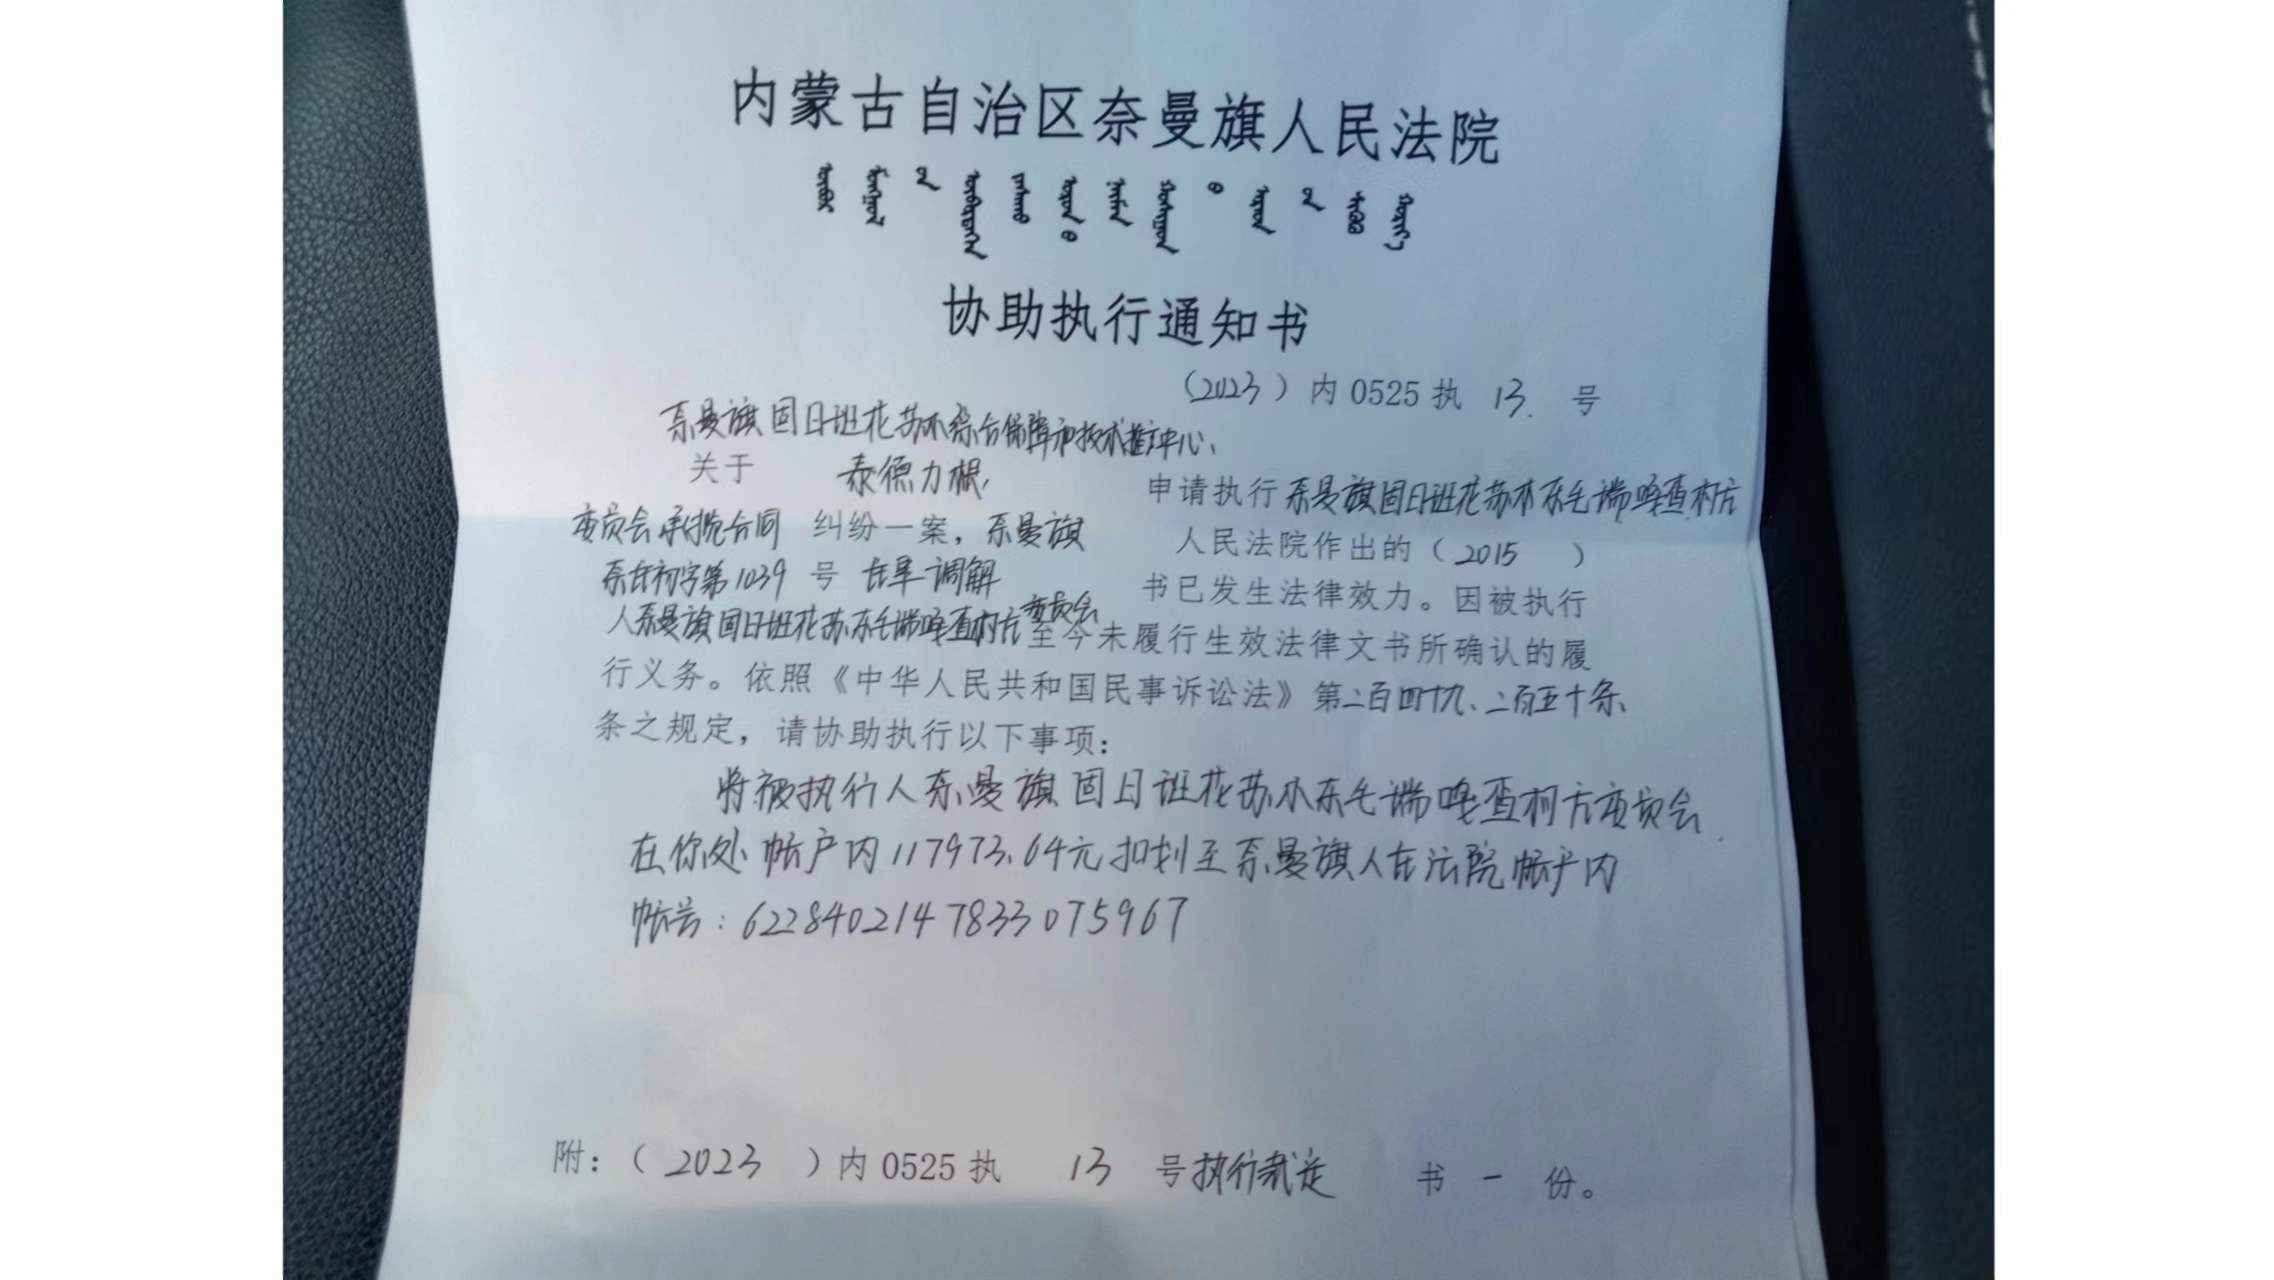 内蒙古自治区奈曼旗人民法院
协助执行通知书
（2023）内 0525 执 13 号
奈曼旗固日班花苏木综合保障和技术推广中心：
关于 泰德力根 申请执行 奈曼旗固日班花苏木东毛端嘎查村方
委员会承揽合同 纠纷一案，奈曼旗 人民法院作出的（2015 ）
奈民初字第1039 号 民事调解 书已发生法律效力。因被执行
人奈曼旗固日班花苏木东毛端嘎查村方委员会至今未履行生效法律文书所确认的履
行义务。依照《中华人民共和国民事诉讼法》第二百四十九、二百五十条、
条之规定，请协助执行以下事项：
将被执行人奈曼旗固日班花苏木东毛端嘎查村方委员会
在你处帐户内117973.64元扣划至奈曼旗人民法院帐户内
帐号：6228402147833075967
附：（2023 ）内 0525 执 13 号执行裁定 书 一 份。